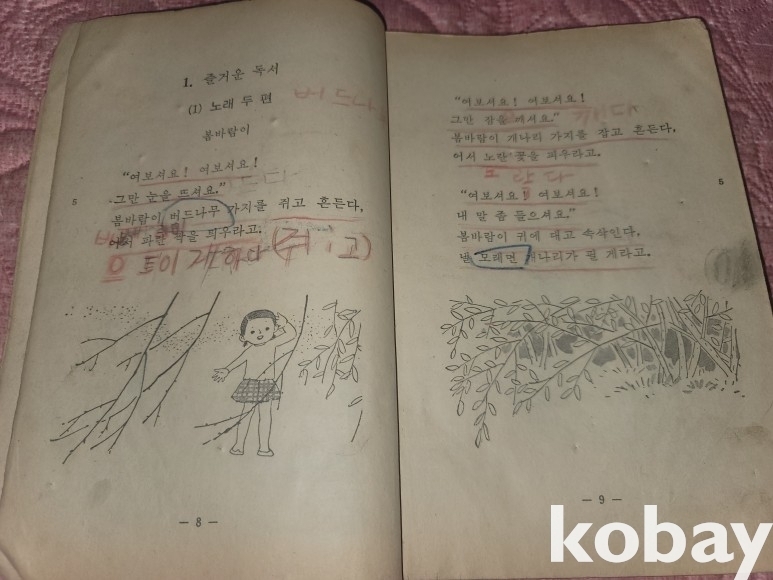 1. 즐거운 독서
(1) 노래 두 편
버드나
봄바람이
"여보셔요! 여보셔요!
그만 눈을 뜨셔요."
5
봄바람이 버드나무 가지를 쥐고 흔든다,
어서 파란 싹을 틔우라고.
(쥐 고)
— 8 —
"여보셔요! 여보셔요!
그만 잠을 깨셔요."
깨다
봄바람이 개나리 가지를 잡고 흔든다,
어서 노란 꽃을 피우라고.
란 다
5
"여보셔요! 여보셔요!
내 말 좀 들으셔요."
봄바람이 귀에 대고 속삭인다,
낼 모레면 개나리가 필 게라고.
— 9 —
kobay